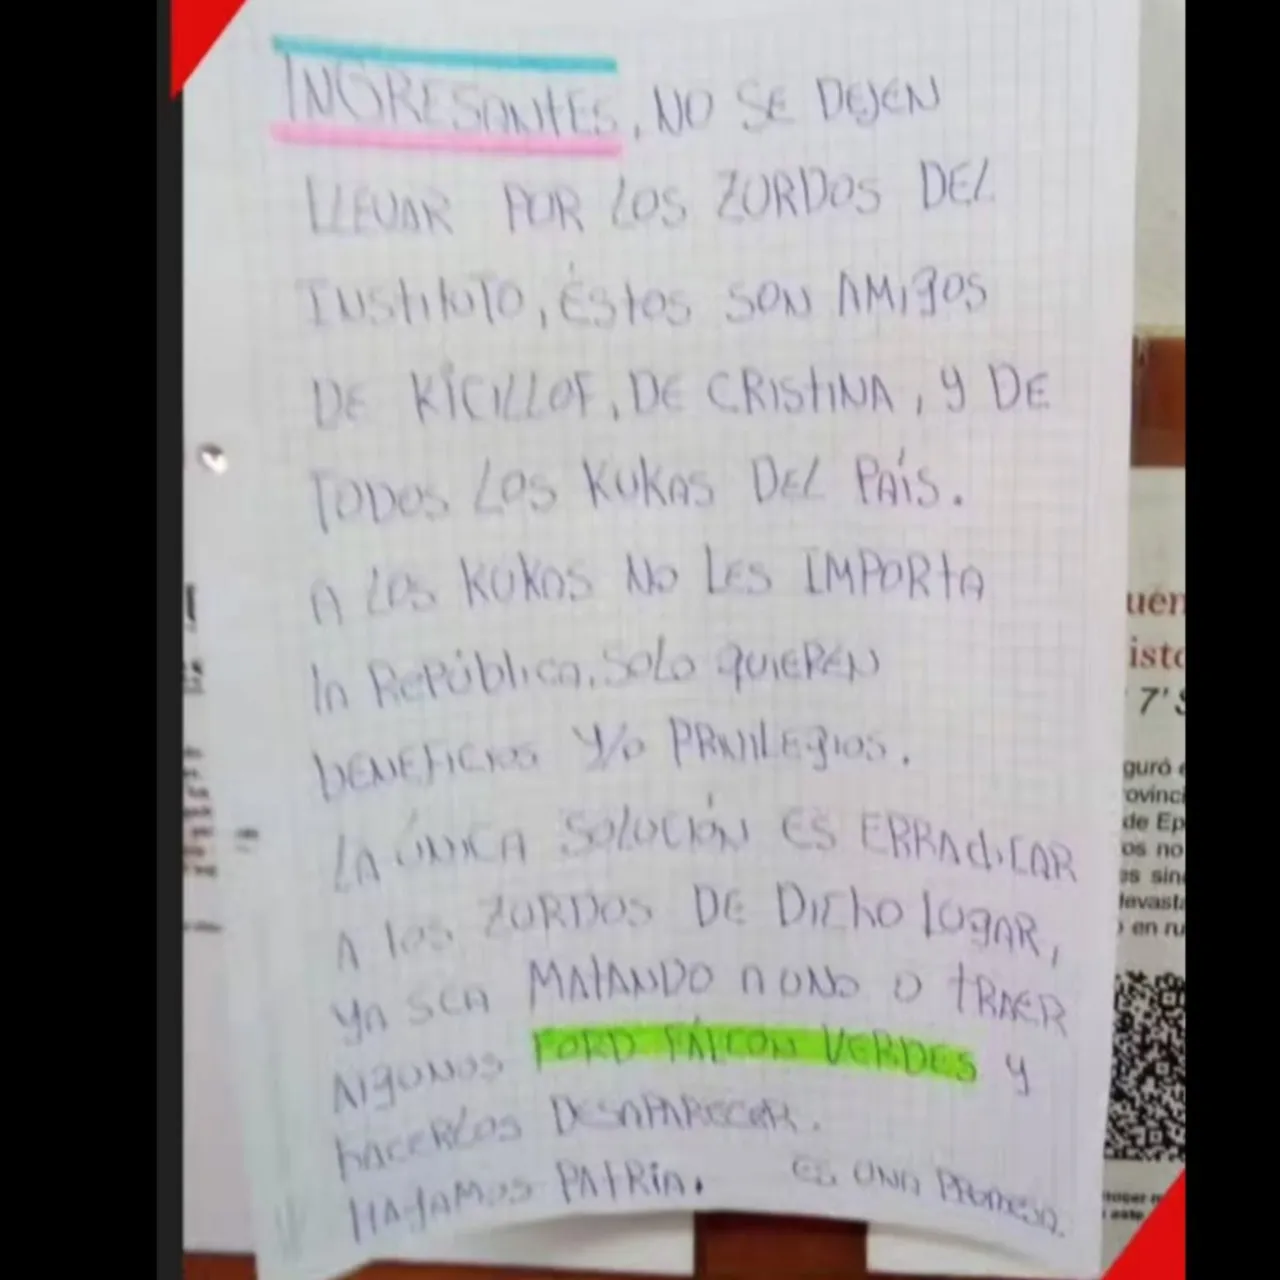 INGRESANTES, NO SE DEJEN
LLEVAR POR LOS ZURDOS DEL
INSTITUTO, ÉSTOS SON AMIGOS
DE KICILLOF, DE CRISTINA, Y DE
TODOS LOS KUKAS DEL PAÍS.
A LOS KUKAS NO LES IMPORTA
la REPÚBLICA, SOLO QUIEREN
BENEFICIOS Y/O PRIVILEGIOS.
LA ÚNICA SOLUCIÓN ES ERRADICAR
A los ZURDOS DE DICHO LUGAR,
YA SEA MATANDO A UNO O TRAER
ALGUNOS FORD FÁLCON VERDES Y
HACERLOS DESAPARECER.
HAGAMOS PATRIA. ES UNA PROMESA.
uen
isto
7'S
guró e
ovinci
de Ep
os no
es sin
levasta
en ru